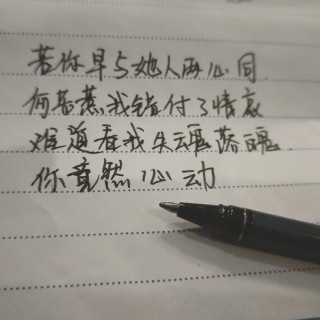 若你早与她人两心同
何苦惹我错付了情衷
难道看我失魂落魄
你竟然心动